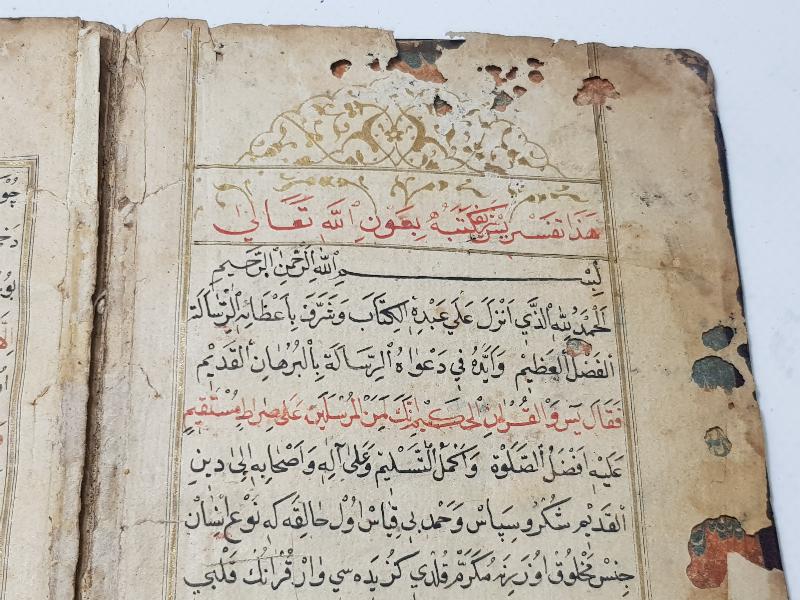 هَذَا تفسير يس نكتبه بِعَوْنِ اللّٰهِ تَعَالىٰ
بِسْمِ اللّٰهِ الرَّحْمٰنِ الرَّحِيمِ
اَلحَمْدُ لِلّٰهِ الَّذِي اَنْزَلَ عَلىٰ عَبْدِهِ الكِتَابَ وَشَرَّفَ بِاَعْطَائِهِ الرِّسَالَةَ
الفَضْلَ العَظِيْمَ وَاَيَّدَهُ فِي دَعْوَاهُ الرِّسَالَةَ بِالبُرْهَانِ القَدِيْمِ
فَقَالَ يٓسٓ وَالقُرْاٰنِ الحَكِيْمِ اِنَّكَ لَمِنَ المُرْسَلِيْنَ عَلىٰ صِرَاطٍ مُسْتَقِيمٍ
عَلَيْهِ اَفْضَلُ الصَّلٰوةِ وَاَكْمَلُ التَّسْلِيمِ وَعَلىٰ اٰلِهِ وَاَصْحَابِهِ اِلىٰ دِينِ
القَدِيْمِ شُكْرُ و سِپَاسْ وَحَمْدِ بِى قِيَاسْ اُولْ خَالِقَهْ كِه نَوْعِ اِنْسَانْ
جِنْسِ مَخْلُوقْ اُوزَرِنَهْ مُكَرَّمْ قِلْدِي كُزِيدَه سِي وَارْ قُرْاٰنُكْ قَلْبِي